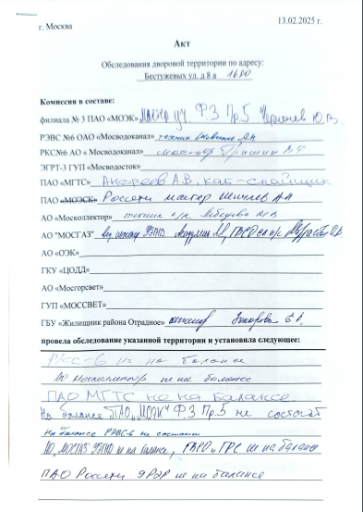 г. Москва
13.02.2025 г.
Акт
Обследования дворовой территории по адресу:
Бестужевых ул. д 8 а 1600
Комиссия в составе:
филиала № 3 ПАО «МОЭК» мастер уч Ф3 Пр.5
РЭВС №6 ОАО «Мосводоканал» техник
РКС№6 АО « Мосводоканал» мастер
ЭГРТ-3 ГУП «Мосводосток»
ПАО «МГТС» Андреев А.В. каб-спайщик
ПАО «МОЭСК» Россети мастер
АО «Москоллектор» техник
АО "МОСГАЗ"
АО «ОЭК»
ГКУ «ЦОДД»
АО «Мосгорсвет»
ГУП «МОССВЕТ»
ГБУ «Жилищник района Отрадное» инженер
провела обследование указанной территории и установила следующее:
РКС-6 не на балансе
Москоллектор не на балансе
ПАО МГТС не на балансе
На балансе ПАО„МОЭК" Ф3 Пр.5 не состоит
На балансе РЭВС-6 не состоит
АО „МОСГАЗ" не на балансе, не на балансе
ПАО Россети не на балансе